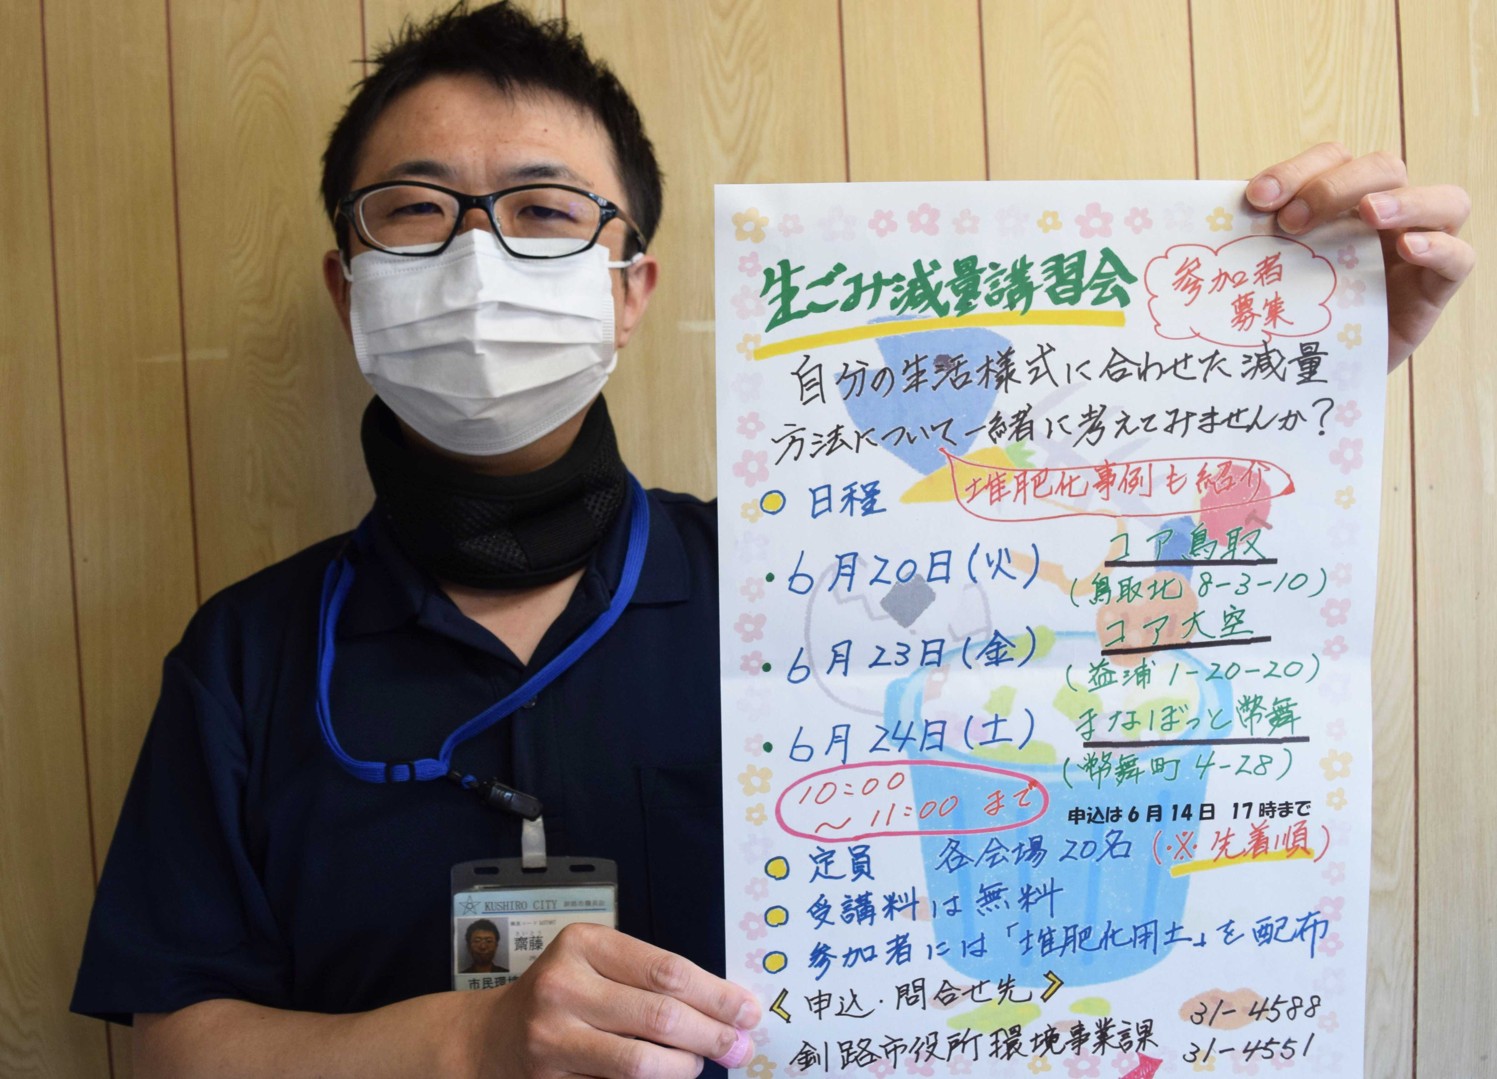 生ごみ減量講習会
参加者
募集
自分の生活様式に合わせた減量
方法について一緒に考えてみませんか?
堆肥化事例も紹介
日程
・6月20日(火) コア鳥取
(鳥取北 8-3-10)
・6月23日(金) コア大空
(益浦 1-20-20)
・6月24日(土) まなぼっと幣舞
(幣舞町 4-28)
10:00
~11:00 まで
申込は6月14日 17時まで
定員 各会場20名 (※先着順)
受講料は無料
参加者には「堆肥化用土」を配布
<申込・問合せ先>
31-4588
釧路市役所環境事業課 31-4551
KUSHIRO CITY
齋藤
市民環境